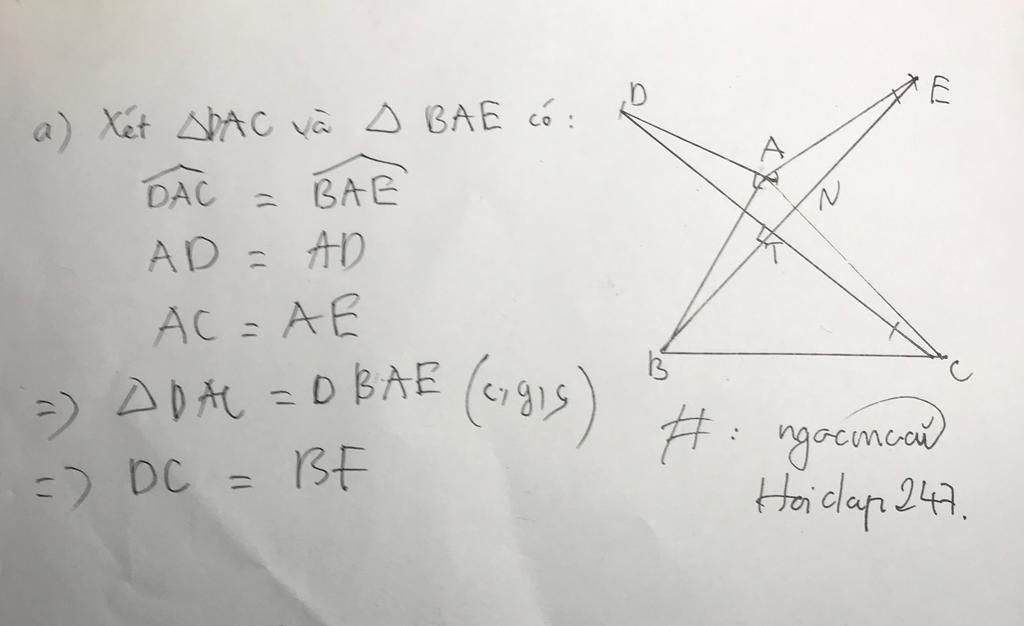 a) Xét △DAC và △ BAE có:
DAC = BAE
AD = AD
AC = AE
=> △DAC = D BAE (c,g,c)
=> DC = BE
D
E
A
N
T
B
C
#: ngocmai
Hoidap247.